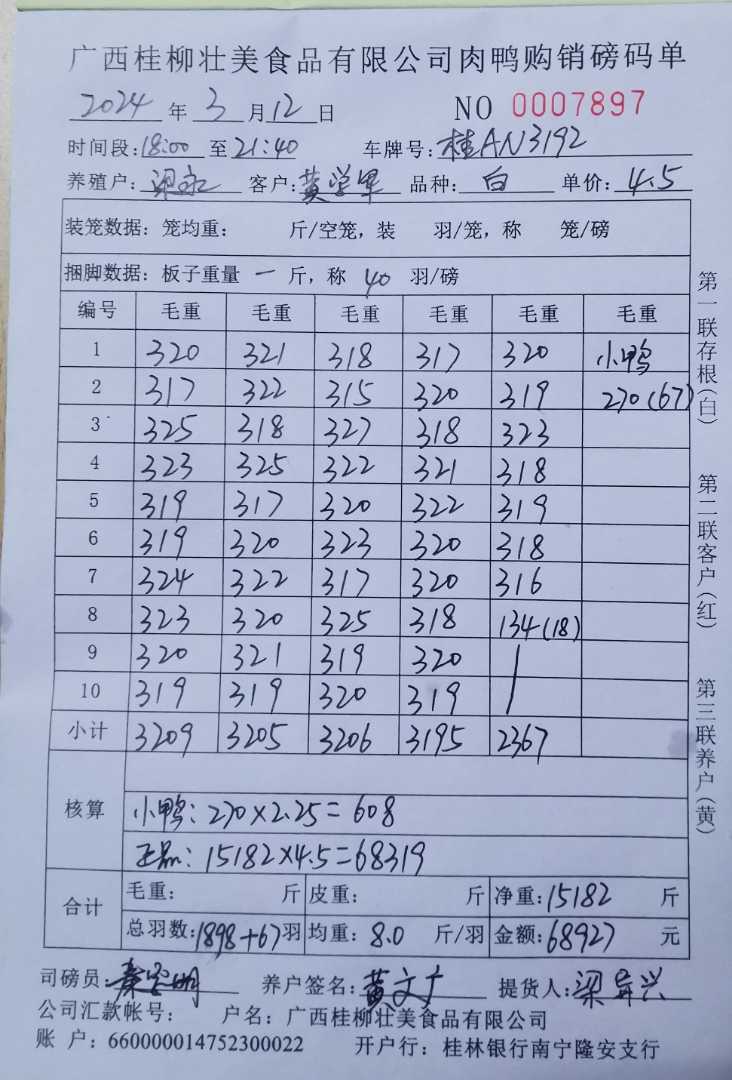 广西桂柳壮美食品有限公司肉鸭购销磅码单
2024 年 3 月 12 日 NO 0007897
时间段:18:00 至 21:40 车牌号:桂AN3192
养殖户: 客户:黄学军 品种:白 单价:4.5
装笼数据：笼均重： 斤/空笼，装 羽/笼，称 笼/磅
捆脚数据：板子重量 一 斤，称 40 羽/磅
编号 毛重 毛重 毛重 毛重 毛重 毛重
1 320 321 318 317 320 小鸭
2 317 322 315 320 319 270(67)
3 325 318 327 318 323
4 323 325 322 321 318
5 319 317 320 322 319
6 319 320 323 320 318
7 324 322 317 320 316
8 323 320 325 318 134(18)
9 320 321 319 320 /
10 319 319 320 319
小计 3209 3205 3206 3195 2367
核算
小鸭: 270×2.25=608
正品: 15182×4.5=68319
合计 毛重： 斤 皮重： 斤 净重:15182 斤
总羽数:1898+67羽 均重：8.0 斤/羽 金额:68927 元
司磅员 养户签名:黄文广 提货人:梁异兴
公司汇款帐号： 户名：广西桂柳壮美食品有限公司
账 户：660000014752300022 开户行：桂林银行南宁隆安支行
第一联存根(白)
第二联客户(红)
第三联养户(黄)